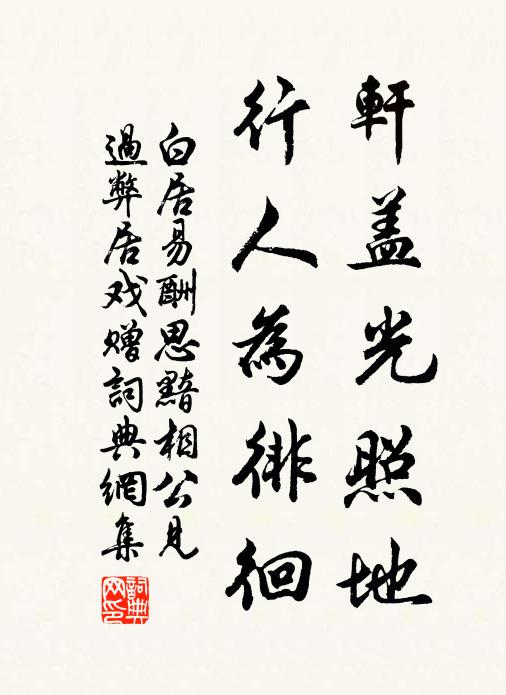 軒盖光照地
行人為徘徊
白居易酬思黯相公見
過弊居戏赠詞典網集
詞典
网印